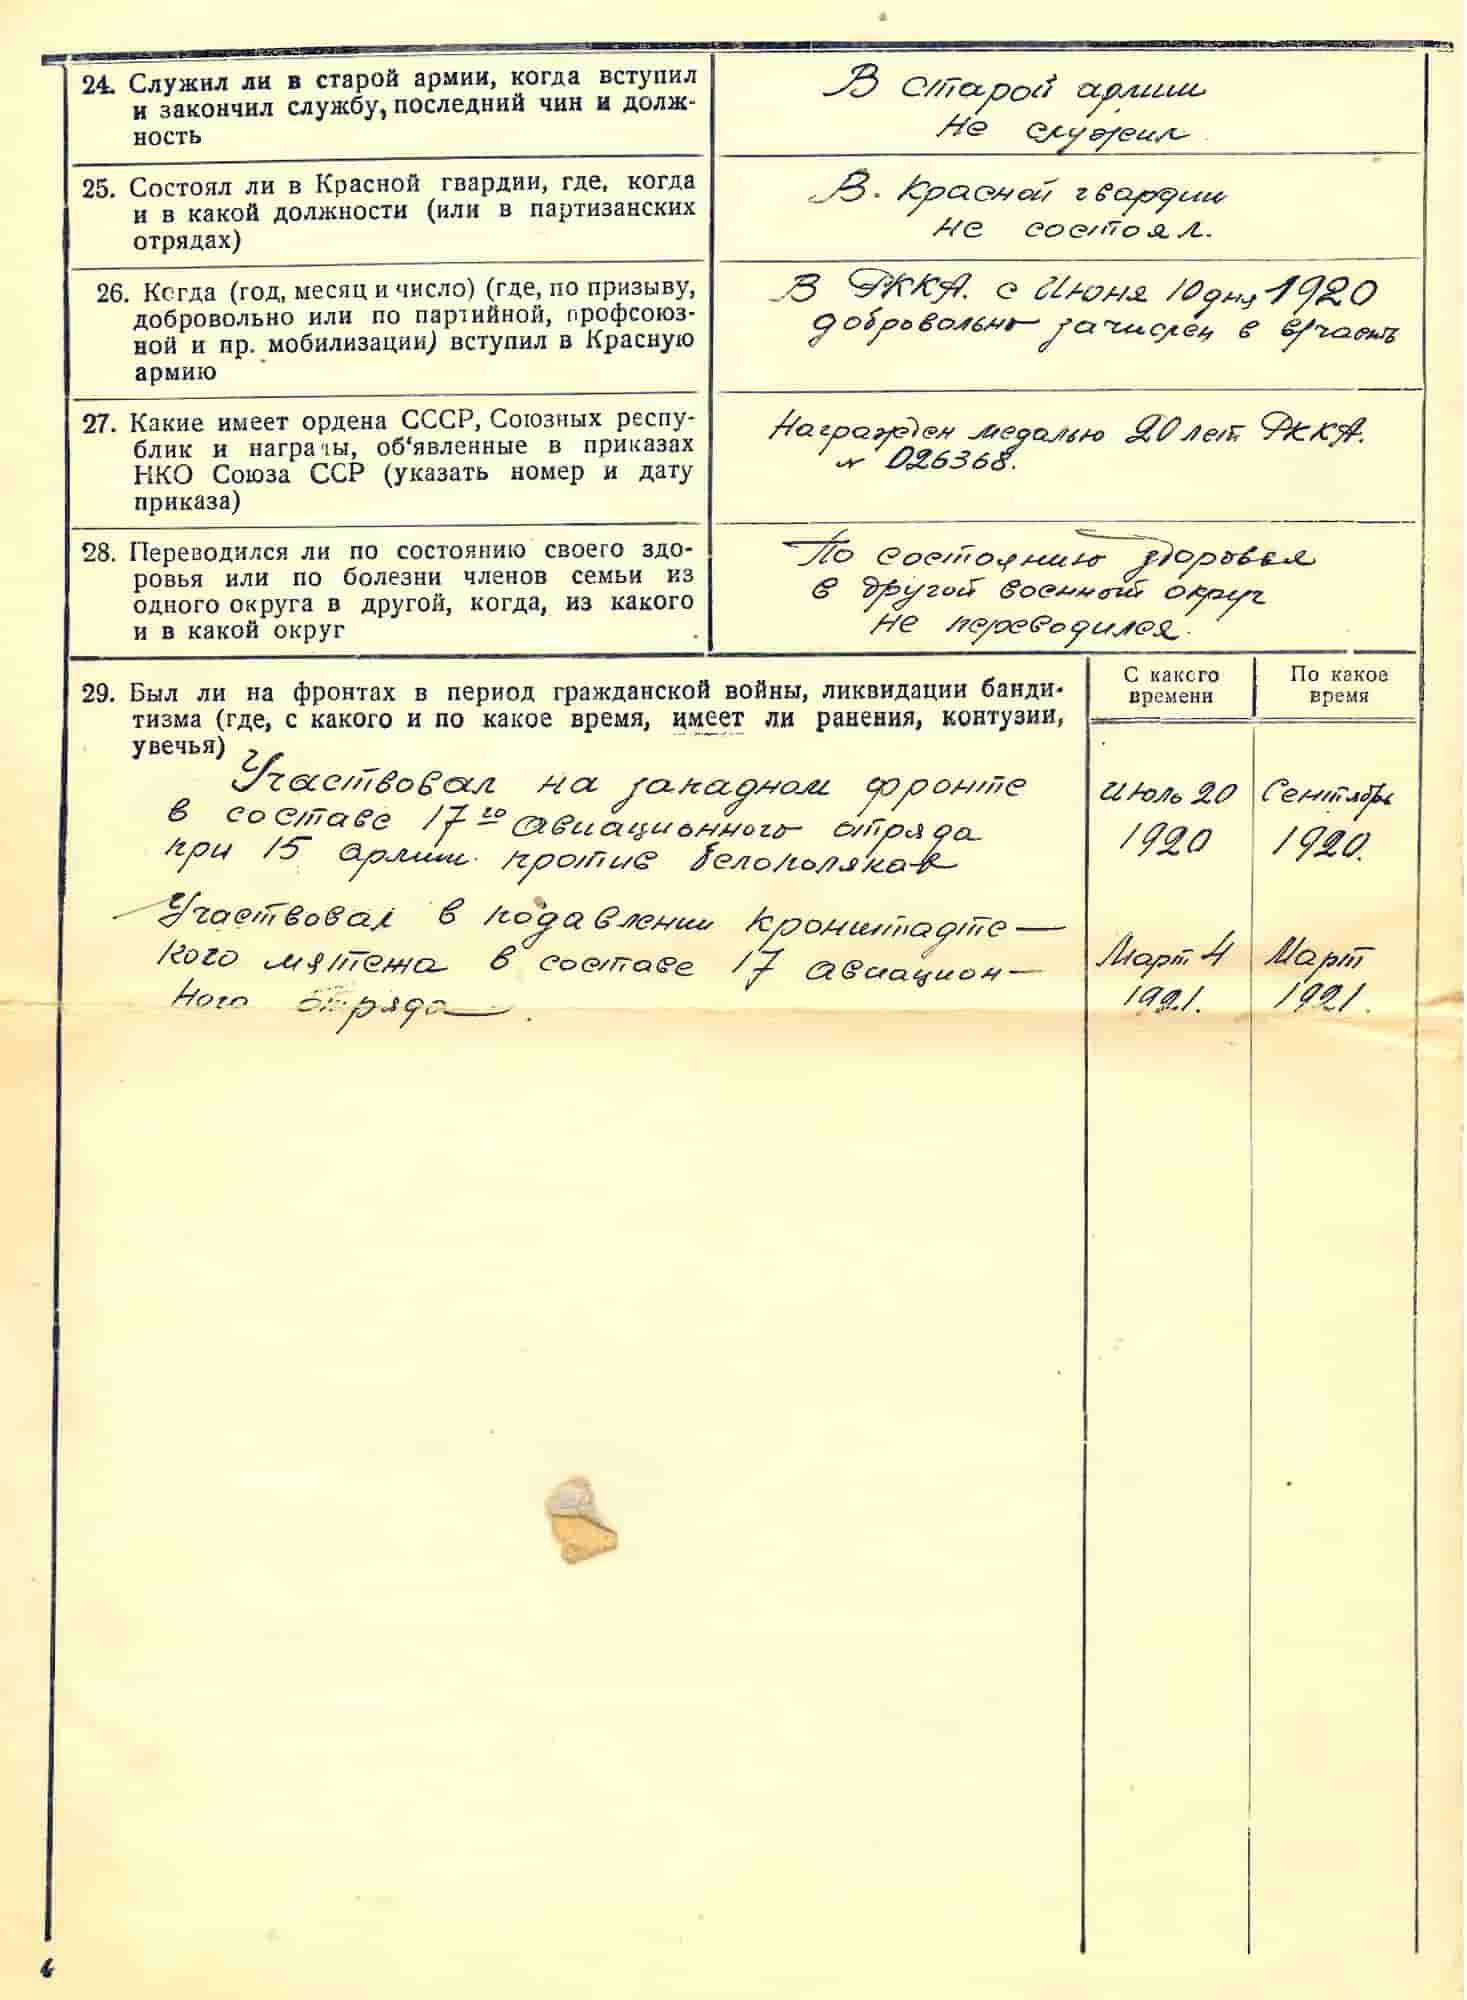 24. Служил ли в старой армии, когда вступил
и закончил службу, последний чин и долж-
ность
В старой армии
не служил.
25. Состоял ли в Красной гвардии, где, когда
и в какой должности (или в партизанских
отрядах)
В. Красной гвардии
не состоял.
26. Когда (год, месяц и число) (где, по призыву,
добровольно или по партийной, профсоюз-
ной и пр. мобилизации) вступил в Красную
армию
В РККА. с Июня 10 дня 1920
добровольно зачислен в
27. Какие имеет ордена СССР, Союзных респу-
блик и награды, об'явленные в приказах
НКО Союза ССР (указать номер и дату
приказа)
Награжден медалью 20 лет РККА.
№ 026368.
28. Переводился ли по состоянию своего здо-
ровья или по болезни членов семьи из
одного округа в другой, когда, из какого
и в какой округ
По состоянию здоровья
в другой военный округ
не переводился.
29. Был ли на фронтах в период гражданской войны, ликвидации банди-
тизма (где, с какого и по какое время, имеет ли ранения, контузии,
увечья)
С какого
времени
По какое
время
Участвовал на западном фронте
в составе 17го авиационного отряда
при 15 армии против белополяков
Июль 20
1920
Сентябрь
1920.
Участвовал в подавлении Кронштадтс—
кого мятежа в составе 17 авиацион—
ного отряда.
Март 4
1921.
Март
1921.